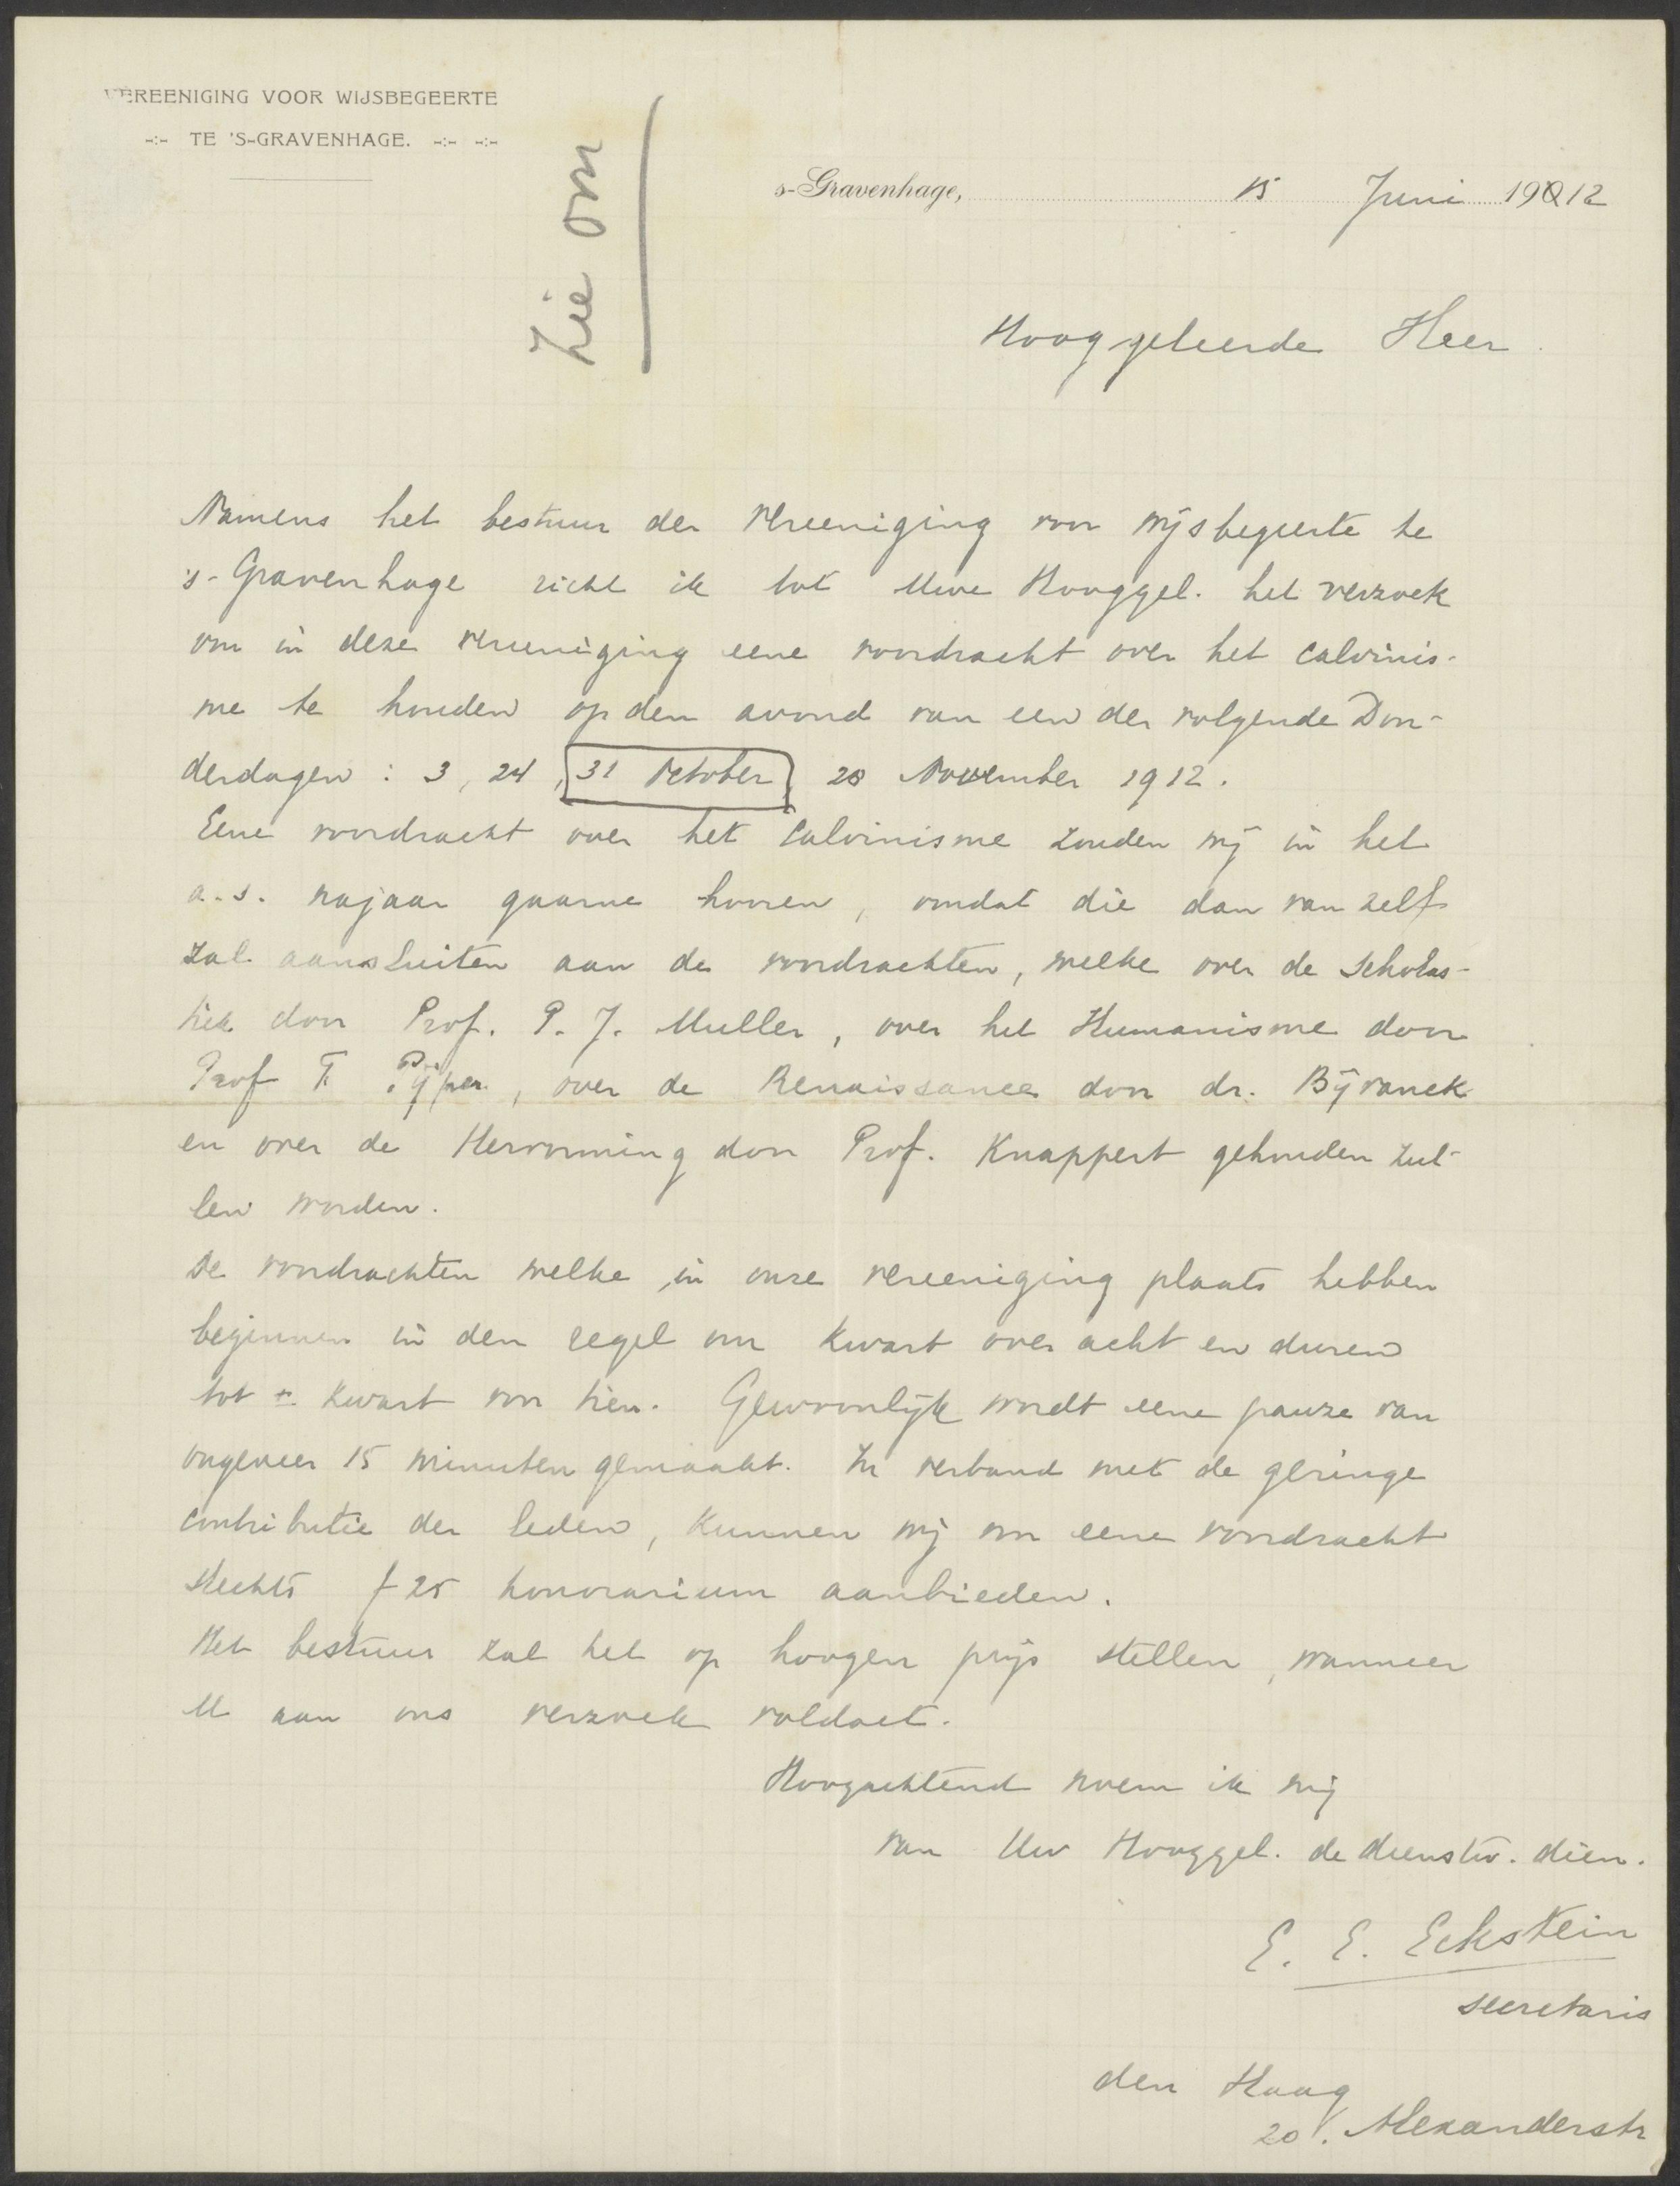 VEREENIGING VOOR WIJSBEGEERTE
-:- TE 'S-GRAVENHAGE. -:- -:-
Zie om
s-Gravenhage, 15 Juni 19012
Hooggeleerde Heer.
Namens het bestuur der Vereeniging voor wijsbegeerte te
's-Gravenhage richt ik tot Uwe Hooggel. het verzoek
om in deze vereeniging eene voordracht over het calvinis-
me te houden op den avond van een der volgende Don-
derdagen : 3, 24, 31 October, 28 November 1912.
Eene voordracht over het Calvinisme zouden wij in het
a.s. najaar gaarne hooren, omdat die dan van zelf
zal aansluiten aan de voordrachten, welke over de Scholas-
tiek door Prof. P. J. Muller, over het Humanisme door
Prof F. Pijper, over de Renaissance door dr. Bijvanck
en over de Hervorming door Prof. Knappert gehouden zul-
len worden.
De voordrachten welke in onze vereeniging plaats hebben
beginnen in den regel om kwart over acht en duren
tot ± kwart voor tien. Gewoonlijk wordt eene pauze van
ongeveer 15 minuten gemaakt. In verband met de geringe
contributie der leden, kunnen wij om eene voordracht
slechts f 25 honorarium aanbieden.
Het bestuur zal het op hoogen prijs stellen, wanneer
U aan ons verzoek voldoet.
Hoogachtend noem ik mij
van Uw Hooggel. de dienstw. dien.
E. E. Eckstein
secretaris
den Haag
20. Alexanderstr